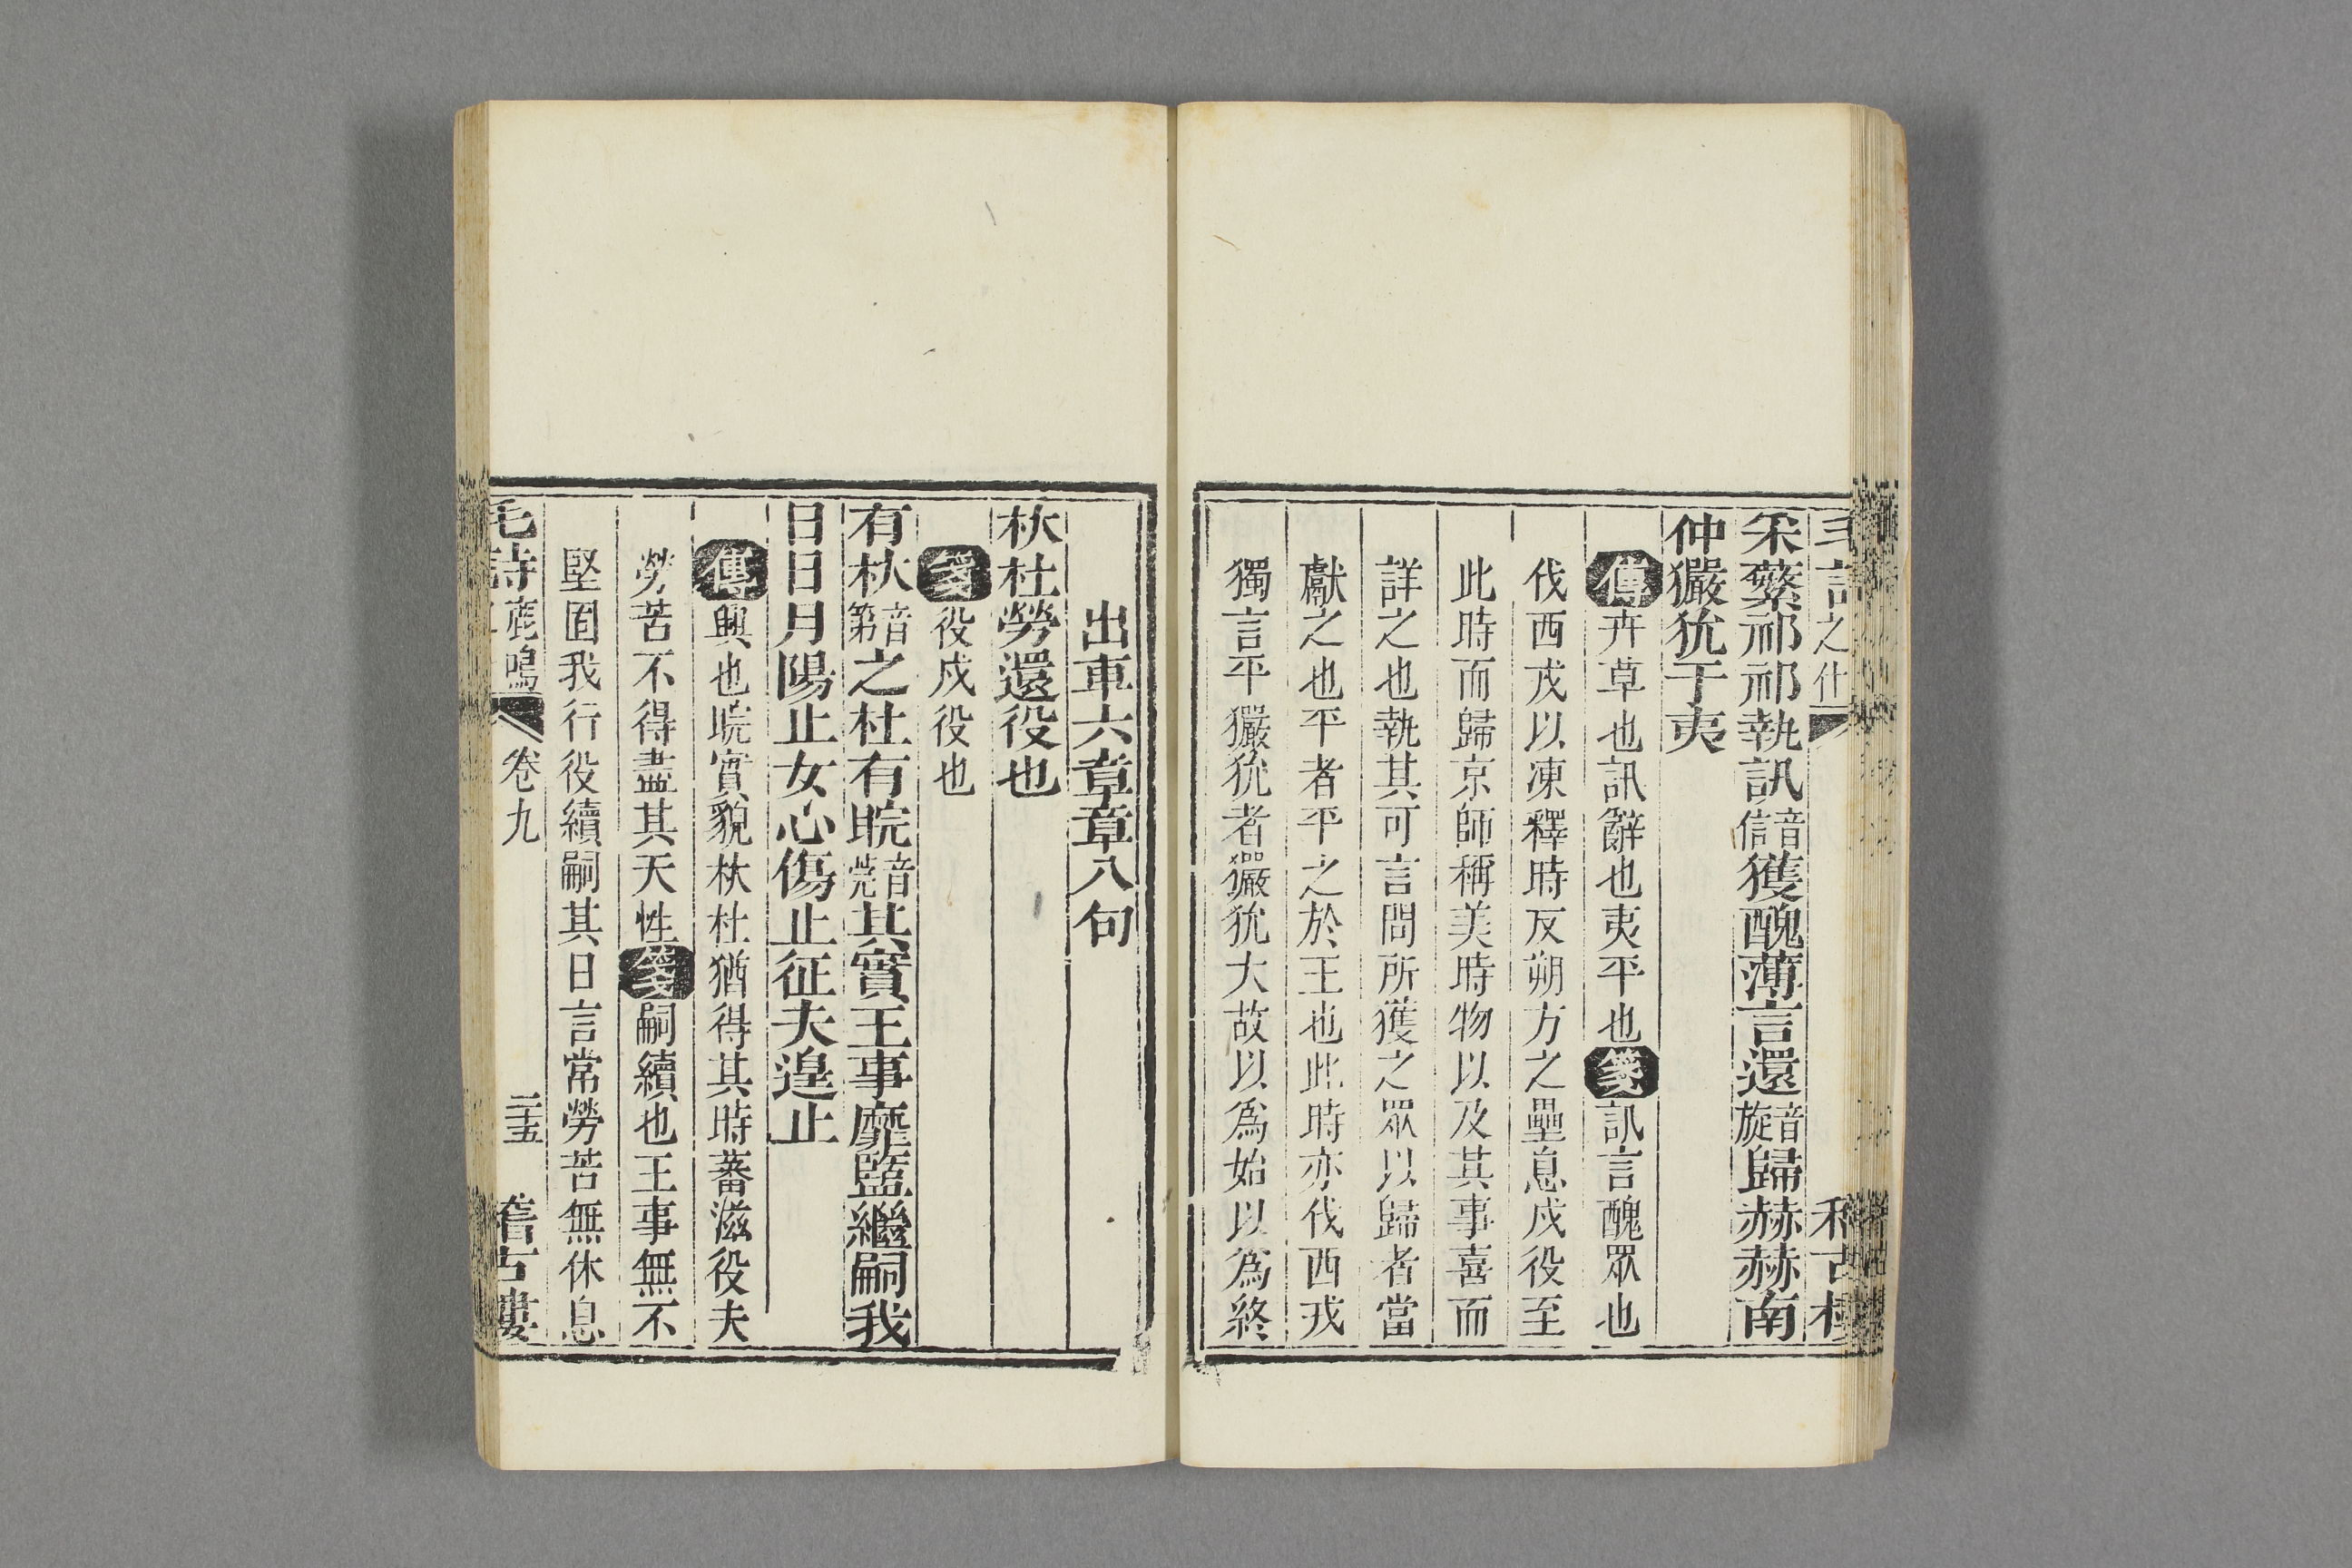 采蘩祁祁執訊音信獲醜薄言還音旋歸赫赫南
仲玁狁于夷
傳卉草也訊辭也夷平也箋訊言醜眾也
伐西戎以凍釋時反朔方之壘息戍役至
此時而歸京師稱美時物以及其事喜而
詳之也執其可言問所獲之眾以歸者當
獻之也平者平之於王也此時亦伐西戎
獨言平玁狁者玁狁大故以爲始以爲終
出車六章章八句
杕杜勞還役也
箋役戍役也
有杕音第之杜有睆音莞其實王事靡盬繼嗣我
日日月陽止女心傷止征夫遑止
傳興也睆實貌杕杜猶得其時蕃滋役夫
勞苦不得盡其天性箋嗣續也王事無不
堅固我行役續嗣其日言常勞苦無休息
毛詩鹿鳴 卷九 二十五 稽古樓